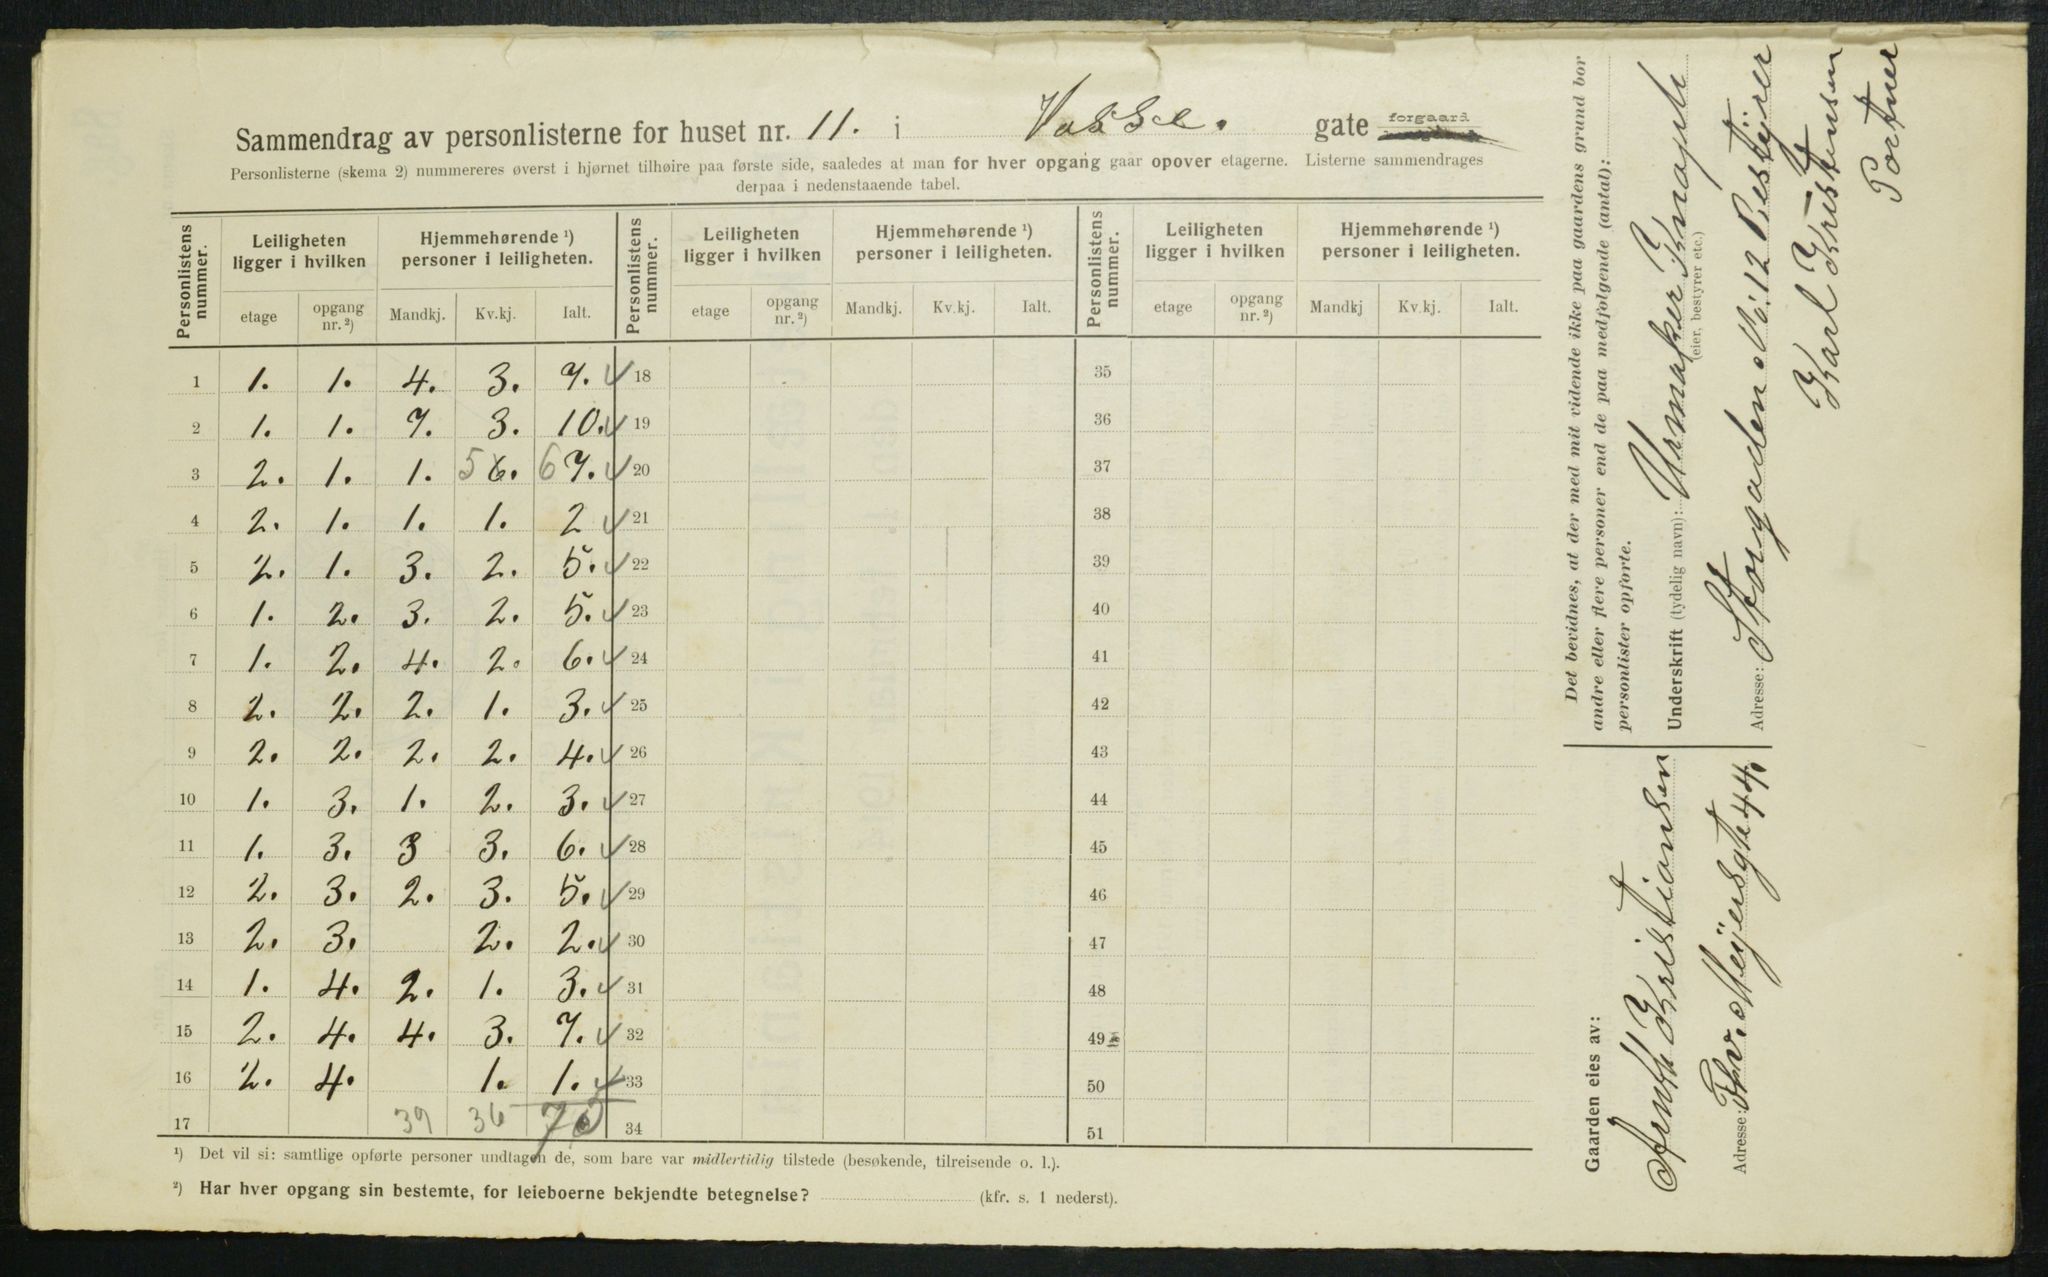 Sammendrag av personlisterne for huset nr. 11. i Vosse. gate forgaard
Personlisterne (skema 2) nummereres øverst i hjørnet tilhøire paa første side, saaledes at man for hver opgang gaar opover etagerne. Listerne sammendrages
derpaa i nedenstaaende tabel.
Personlistens nummer. Leiligheten ligger i hvilken Hjemmehørende ¹) personer i leiligheten. Personlistens nummer. Leiligheten ligger i hvilken Hjemmehørende ¹) personer i leiligheten. Personlistens nummer. Leiligheten ligger i hvilken Hjemmehørende ¹) personer i leiligheten.
etage opgang nr. ²) Mandkj. Kv.kj. Ialt. etage opgang nr. ²) Mandkj. Kv.kj. Ialt. etage opgang nr. ²) Mandkj Kv.kj. Ialt.
1 1. 1. 4. 3. 7. 18 35
2 1. 1. 7. 3. 10. 19 36
3 2. 1. 1. 5 6. 6 7. 20 37
4 2. 1. 1. 1. 2 21 38
5 2. 1. 3. 2. 5. 22 39
6 1. 2. 3. 2. 5. 23 40
7 1. 2. 4. 2. 6. 24 41
8 2. 2. 2. 1. 3. 25 42
9 2. 2. 2. 2. 4. 26 43
10 1. 3. 1. 2. 3. 27 44
11 1. 3. 3 3. 6. 28 45
12 2. 3. 2. 3. 5. 29 46
13 2. 3. 2. 2. 30 47
14 1. 4. 2. 1. 3. 31 48
15 2. 4. 4. 3. 7. 32 49
16 2. 4. 1. 1. 33 50
17 39 36 75 34 51
¹) Det vil si: samtlige opførte personer undtagen de, som bare var midlertidig tilstede (besøkende, tilreisende o. l.).
²) Har hver opgang sin bestemte, for leieboerne bekjendte betegnelse? (kfr. s. 1 nederst).
Det bevidnes, at der med mit vidende ikke paa gaardens grund bor
andre eller flere personer end de paa medfølgende (antal):
personlister opførte.
Underskrift (tydelig navn): Urmaker Knaph
(eier, bestyrer etc.)
Adresse: Storgaden No: 12 Bestÿrer
Karl Kristensen
Portner
Gaarden eies av:
Arndt Kristiansen
Adresse: Thv. Meÿersgte 44.